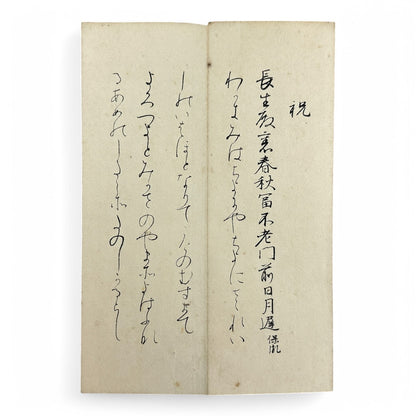 祝
長生殿裏春秋冨不老门前日月遅 保胤
わかきみはちよにやちよにさゝれい
しのいはほとなりてこけのむすまて
よろつよとみかさのやまそよはふな
るあめのしたこそたのしかるらし